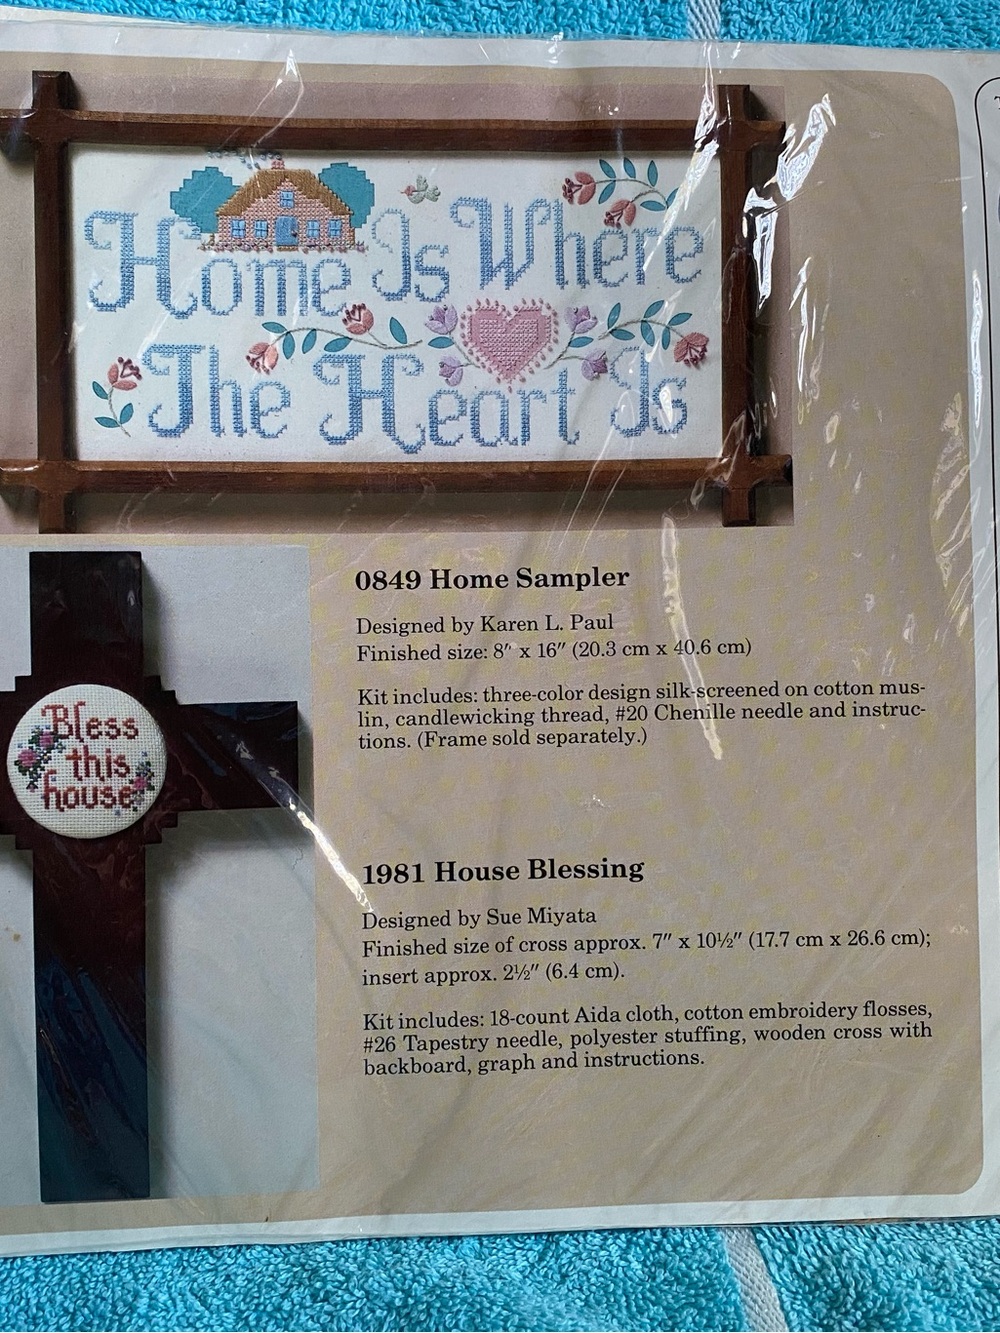 Home Is Where
The Heart Is
0849 Home Sampler
Designed by Karen L. Paul
Finished size: 8″ x 16″ (20.3 cm x 40.6 cm)
Kit includes: three-color design silk-screened on cotton mus-
lin, candlewicking thread, #20 Chenille needle and instruc-
tions. (Frame sold separately.)
Bless
this
house
1981 House Blessing
Designed by Sue Miyata
Finished size of cross approx. 7″ x 10½″ (17.7 cm x 26.6 cm);
insert approx. 2½″ (6.4 cm).
Kit includes: 18-count Aida cloth, cotton embroidery flosses,
#26 Tapestry needle, polyester stuffing, wooden cross with
backboard, graph and instructions.